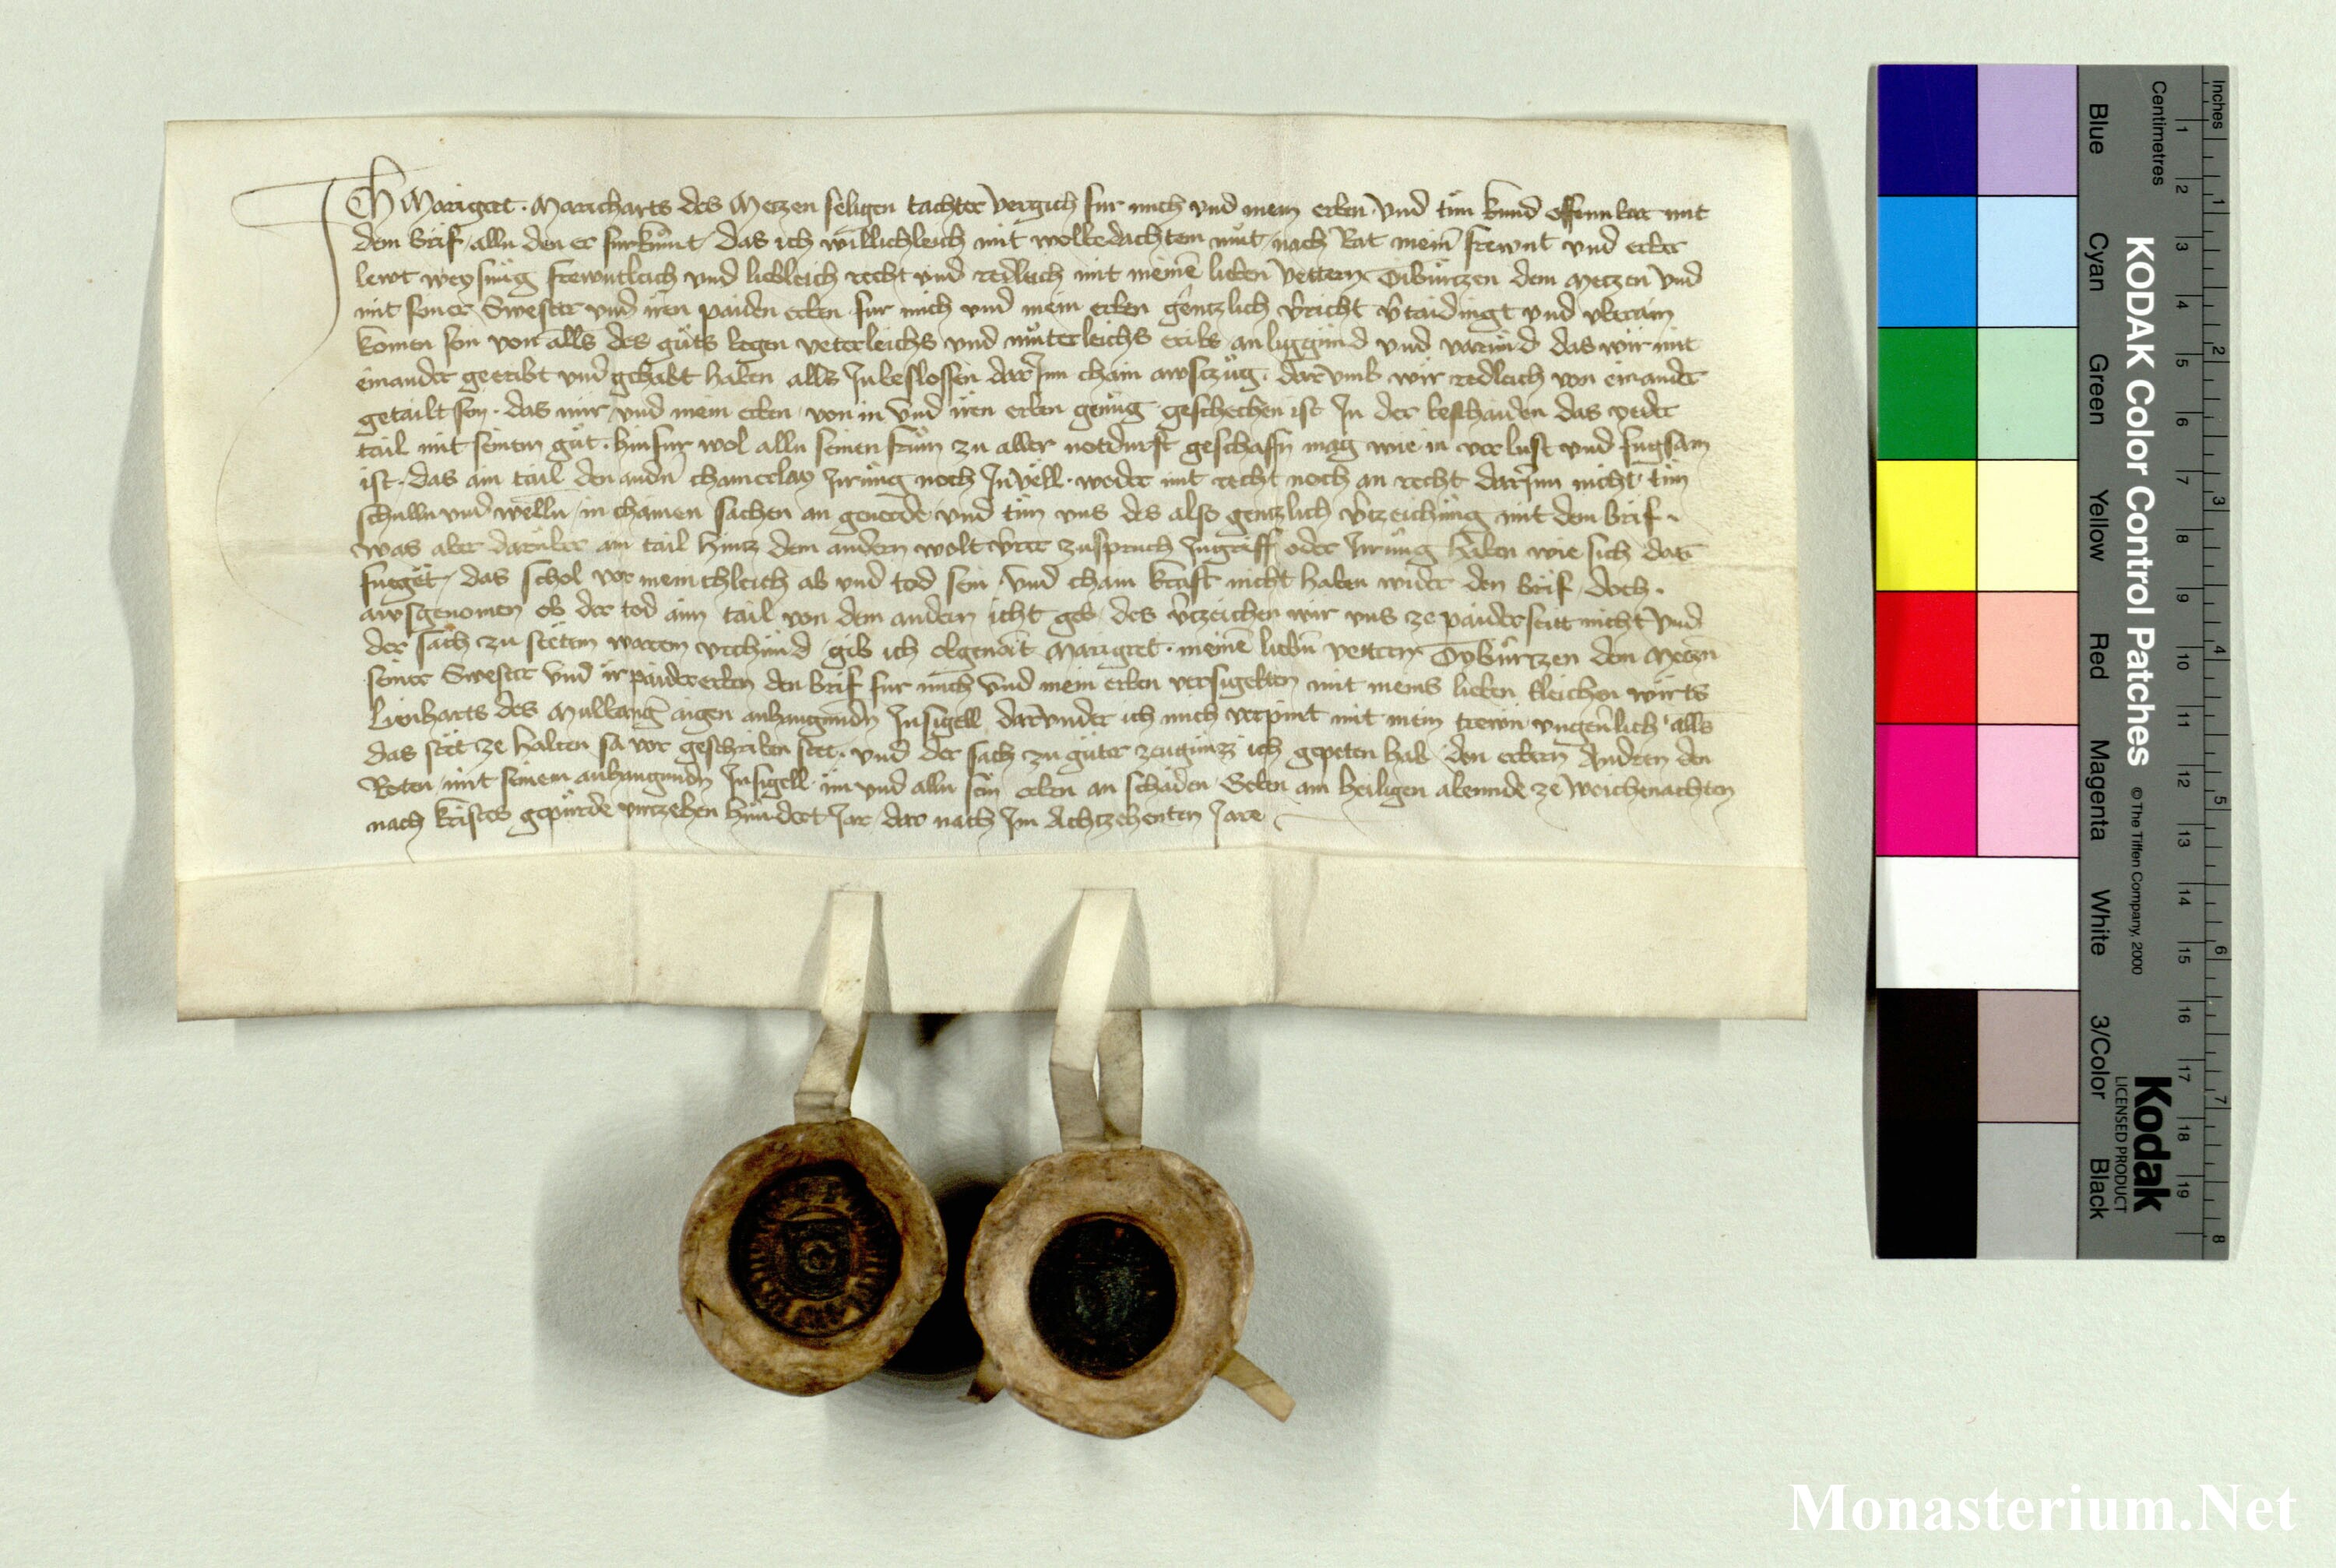 Ich Margret Marcharts des Metzen seligen tachter vergich fur mich vnd mein erben vnd tun kund offennbar mit
dem brif alln den er furkumt das ich willichleich mit wolbedachtem mut nach Rat meiner frewnt vnd erber
lewt weysung frewntleich vnd liebleich recht vnd redleich mit meinem lieben vettern Tiburtzen dem Metzen vnd
mit seiner Swester vnd iren paiden erben fur mich vnd mein erben gentzlich v̄richt v̄taidingt vnd vberain
komen sein von alls des guts wegen veterleichs vnd muterleichs eribs an liggund vnd varund das wir mit
einander geeribt vnd gehabt haben alls Inbeslossen dar Inn chain awsczug dar vmb wir redleich von einander
getailt sein das mir vnd mein erben von in vnd iren erben genug geschechen ist In der beschaiden das yeder
tail mit seinem gut hinfur wol alln seinen frum zu aller notdurft geschaffn mag wie in verlust vnd fugsam
ist das ain tail den andn̄ chainerlay Irrung noch Inuell weder mit recht noch an recht darInn nicht tun
schulln vnd welln in chainen sachen an geuerde vnd tun vns des also gentzlich v̄tzeichung mit dem brif
was aber daruber ain tail hintz dem andern wolt v̄rer zuspruch Ingriff oder Irrung haben wie sich daz
fueget das schol vor menichleich ab vnd tod sein vnd chain kraft nicht haben wider den brif doch
awsgenomen ob der tod ainn tail von dem andern icht geb des v̄tzeichen wir vns ze paiderseitt nicht vnd
der sach zu stetem waren vrchund gib ich obgenāt Margret meinē liebn̄ vettern Tyburtzen dem Metzn̄
seiner Swester vnd ir paider erben den brif fur mich vnd mein erben versigelten mit meins lieben eleichen wirts
Lienharts des aigen anhangundn Insigell darvnder ich mich verpint mit mein trewn vngeuerlich alls
das stet ze halten so vor geschriben stet vnd der sach zu guter zeugnuzz ich gepeten hab den erbern Andren den
Roten mit seinem anhangundn Insigell im vnd alln sein erben an schaden Geben am heiligen abennde ze Weichenachten
nach kristes gepurde virzehen hundert Jar dar nach Im Achtzehenten Jare
Inches
Centimetres
1 2 3 4 5 6 7 8 9 10 11 12 13 14 15 16 17 18 19
1 2 3 4 5 6 7 8
KODAK Color Control Patches
© The Tiffen Company, 2000
Kodak
LICENSED PRODUCT
Blue
Cyan
Green
Yellow
Red
Magenta
White
3/Color
Black
Monasterium.Net